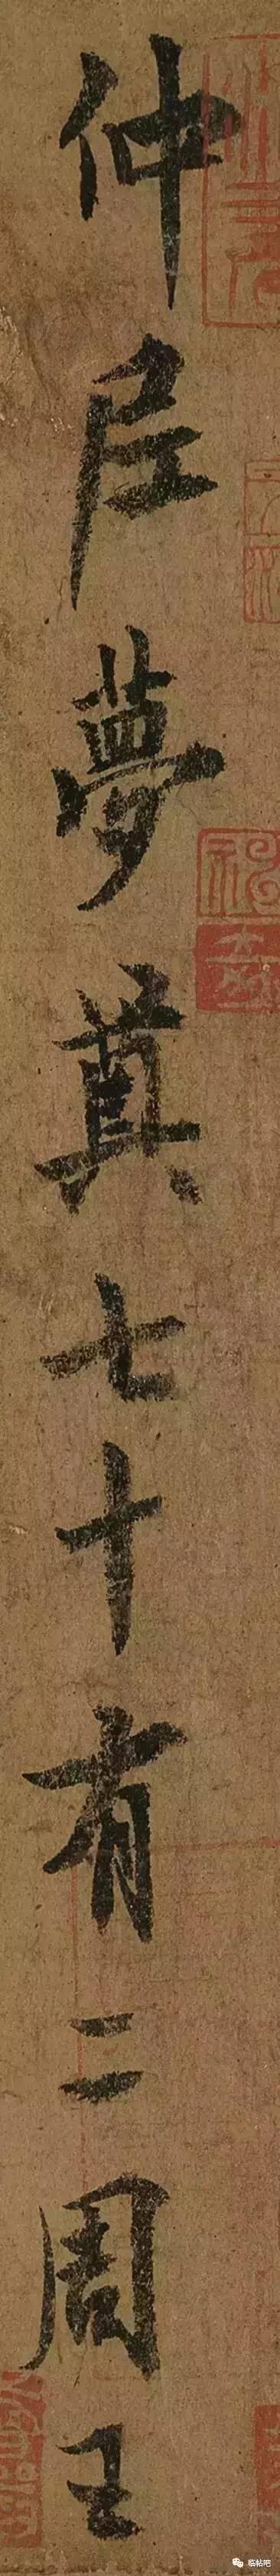 仲尼夢奠七十有二周王
临帖吧